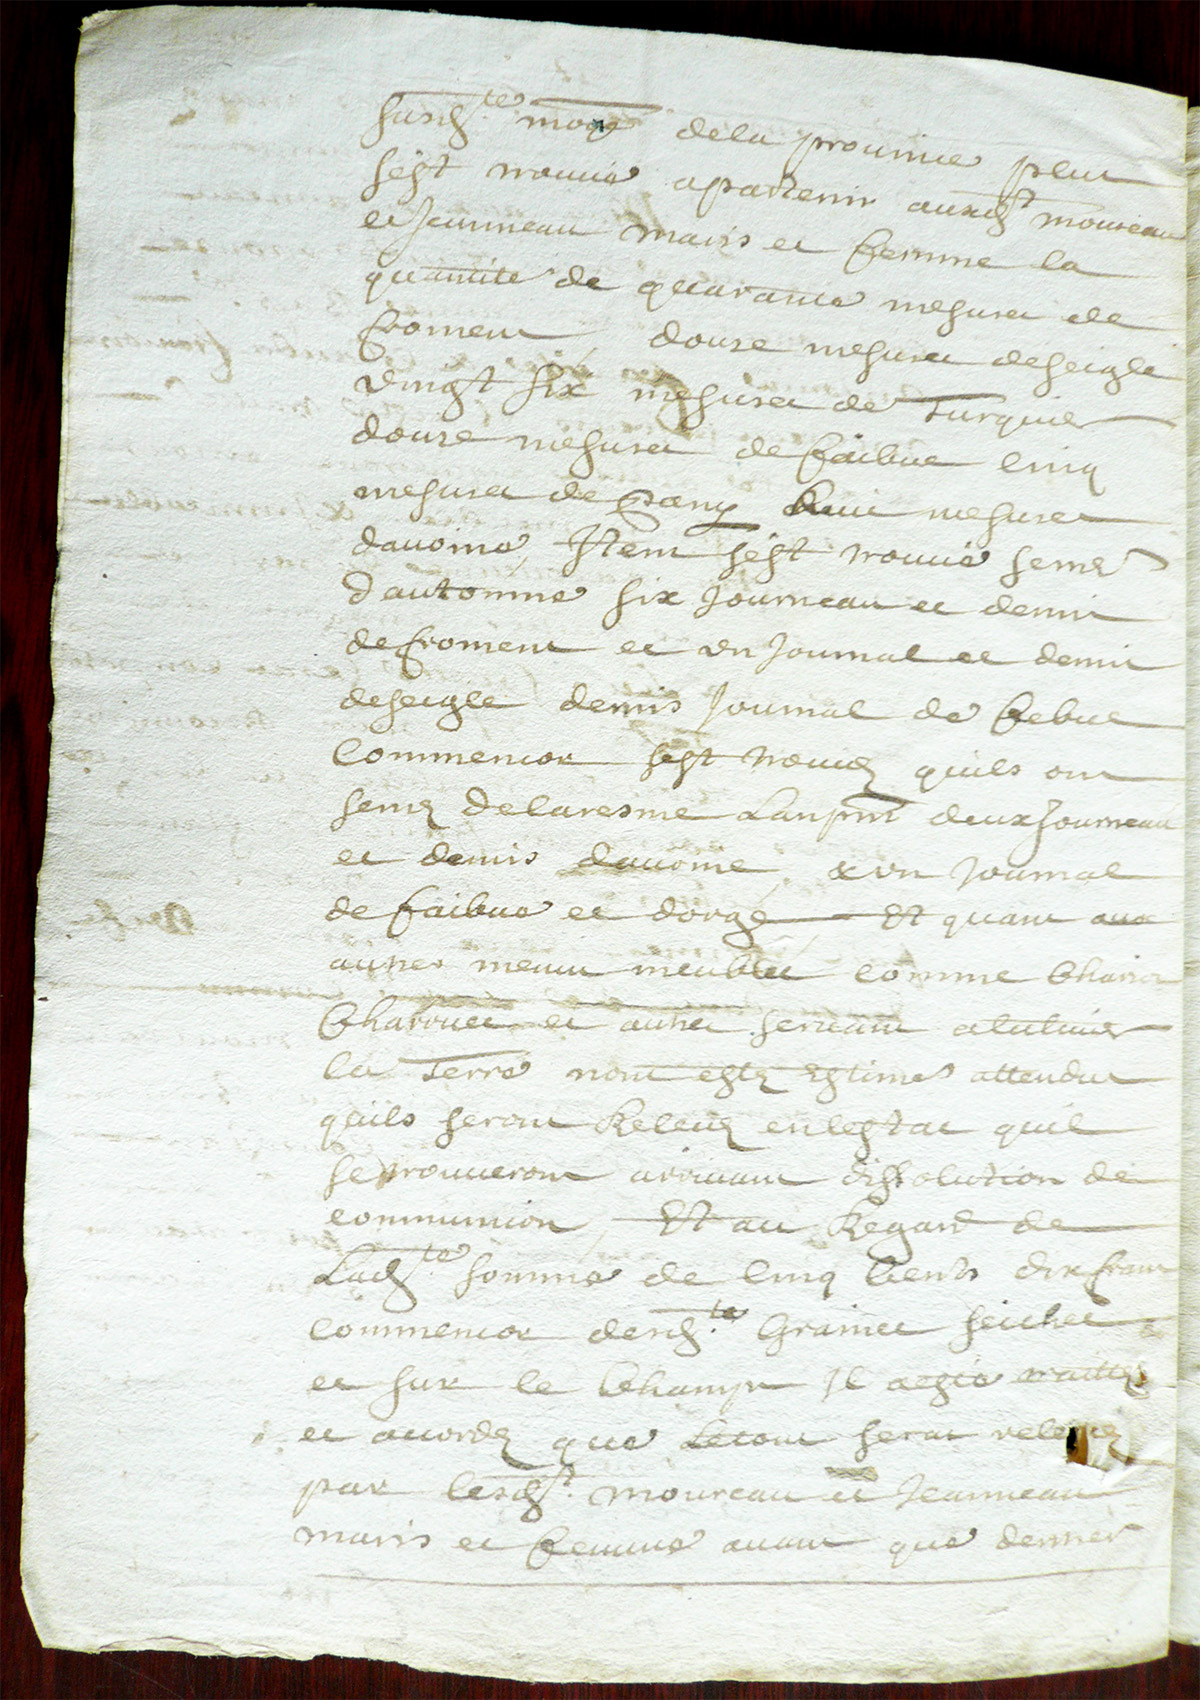 susd.te monoye de la province plus
s'est trouvé apartenir ausd.t Moureau
et Jeanneau maris et femme la
quantité de quarante mesures de
froment, douze mesures de seigle
vingt six mesures de Turquie
douze mesures de faibve cinq
mesures de pany huit mesures
davoine, Item s'est trouvé semé
d'automne six Journeau et demir
de froment et un Journal et demir
de seigle demis Journal de febve
Comme encor s'est trouvé quils ont
semé de Caresme Lanpnt deux Journeau
et demis davoine, & un Journal
de faibve et dorge Et quant aux
autres menu meubles comme Chariot
Charrues et autres servant a Cultiver
la Terre nont estez Estimé attendu
quils seront Relevez en lestat quil
se trouveront arrivant dissolution de
communion, Et au Regard de
Lad.te somme de cinq Cents dix frans
comme encor desd.tes Graines seiches
et sur le Champ Il a esté traitté
et acordé que Letout serat relevé
par lesd.t Moureau et Jeanneau
maris et femme avant que denrer